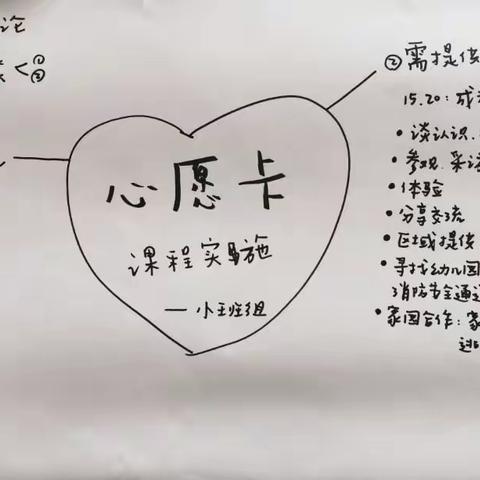 论
< ①
②
心愿卡
课程实施
— 小班组
② 需提供
15.20:成
• 谈认识.
• 参观.采访
• 体验
• 分享交流
• 区域提供
• 寻找幼儿园
消防安全通道
• 家园合作:家
逃